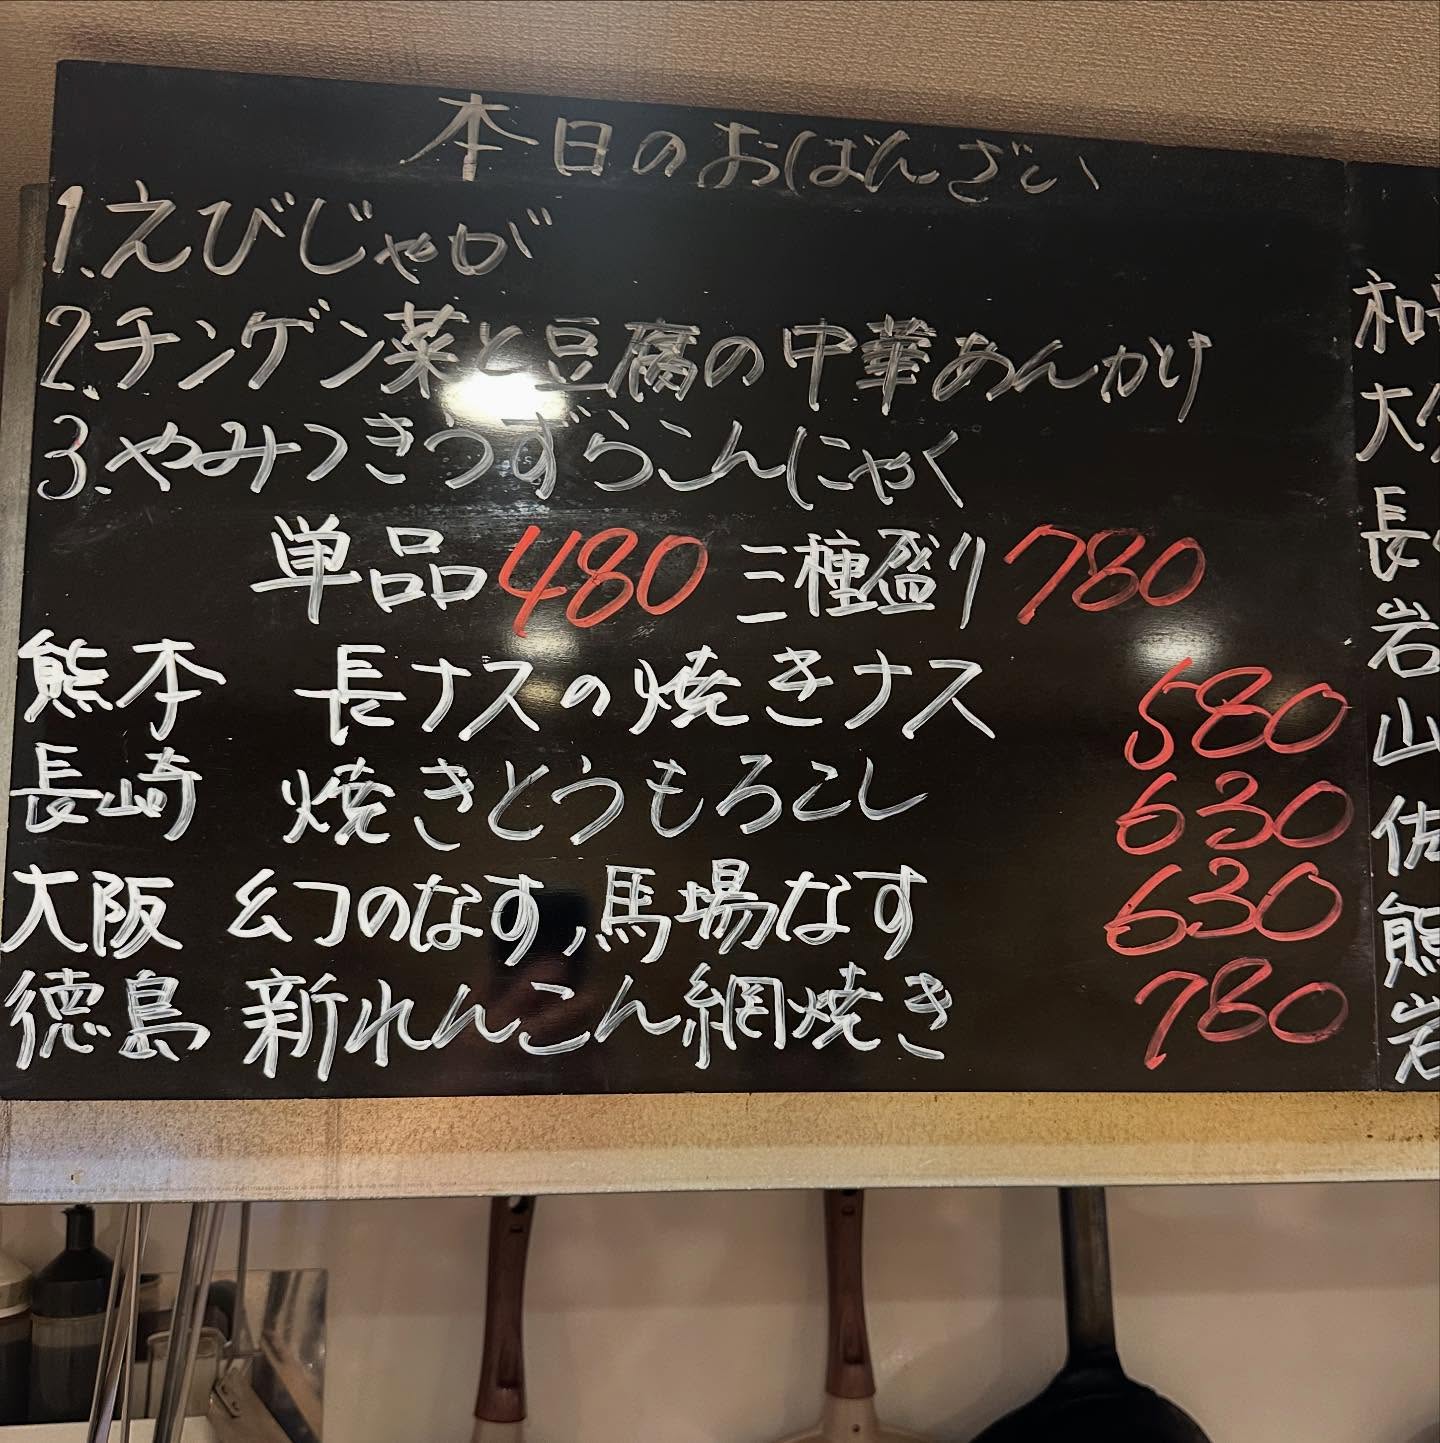 本日のおばんざい
1.えびじゃが
2.チンゲン菜と豆腐の中華あんかけ
3.やみつきうずらこんにゃく
単品480 三種盛り780
熊本 長ナスの焼きナス 580
長崎 焼きとうもろこし 630
大阪 幻のなす,馬場なす 630
徳島 新れんこん網焼き 780
大
長
岩
山
佐
熊
岩